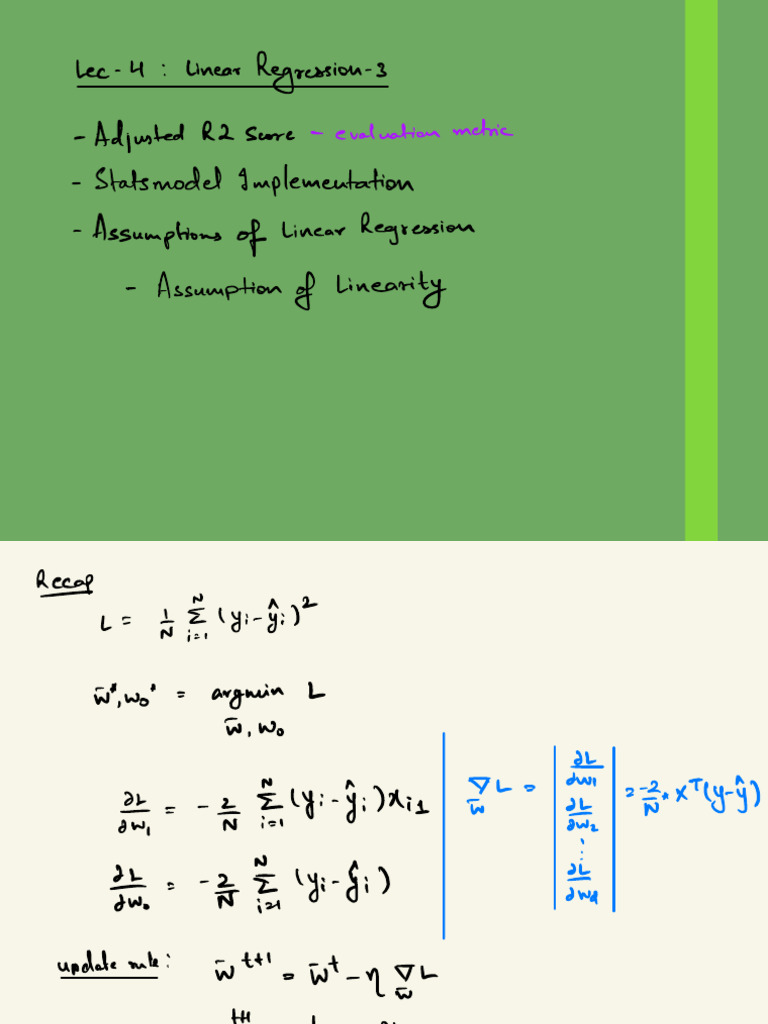 Lec-4 : Linear Regression-3
- Adjusted R2 Score - evaluation metric
- Statsmodel Implementation
- Assumptions of Linear Regression
- Assumption of Linearity
Recap
L = 1/N Σ_{i=1}^{N} (yi - ŷi)²
w̄*, w₀* = argmin L
w̄, w₀
∂L/∂w₁ = -2/N Σ_{i=1}^{N} (yi - ŷi) xi1
∇_w̄ L = | ∂L/∂w₁ ∂L/∂w₂ ⋮ ∂L/∂wd | = -2/N * Xᵀ(y - ŷ)
∂L/∂w₀ = -2/N Σ_{i=1}^{N} (yi - ŷi)
update rule: w̄^{t+1} = w̄^t - η ∇_w̄ L
t+1